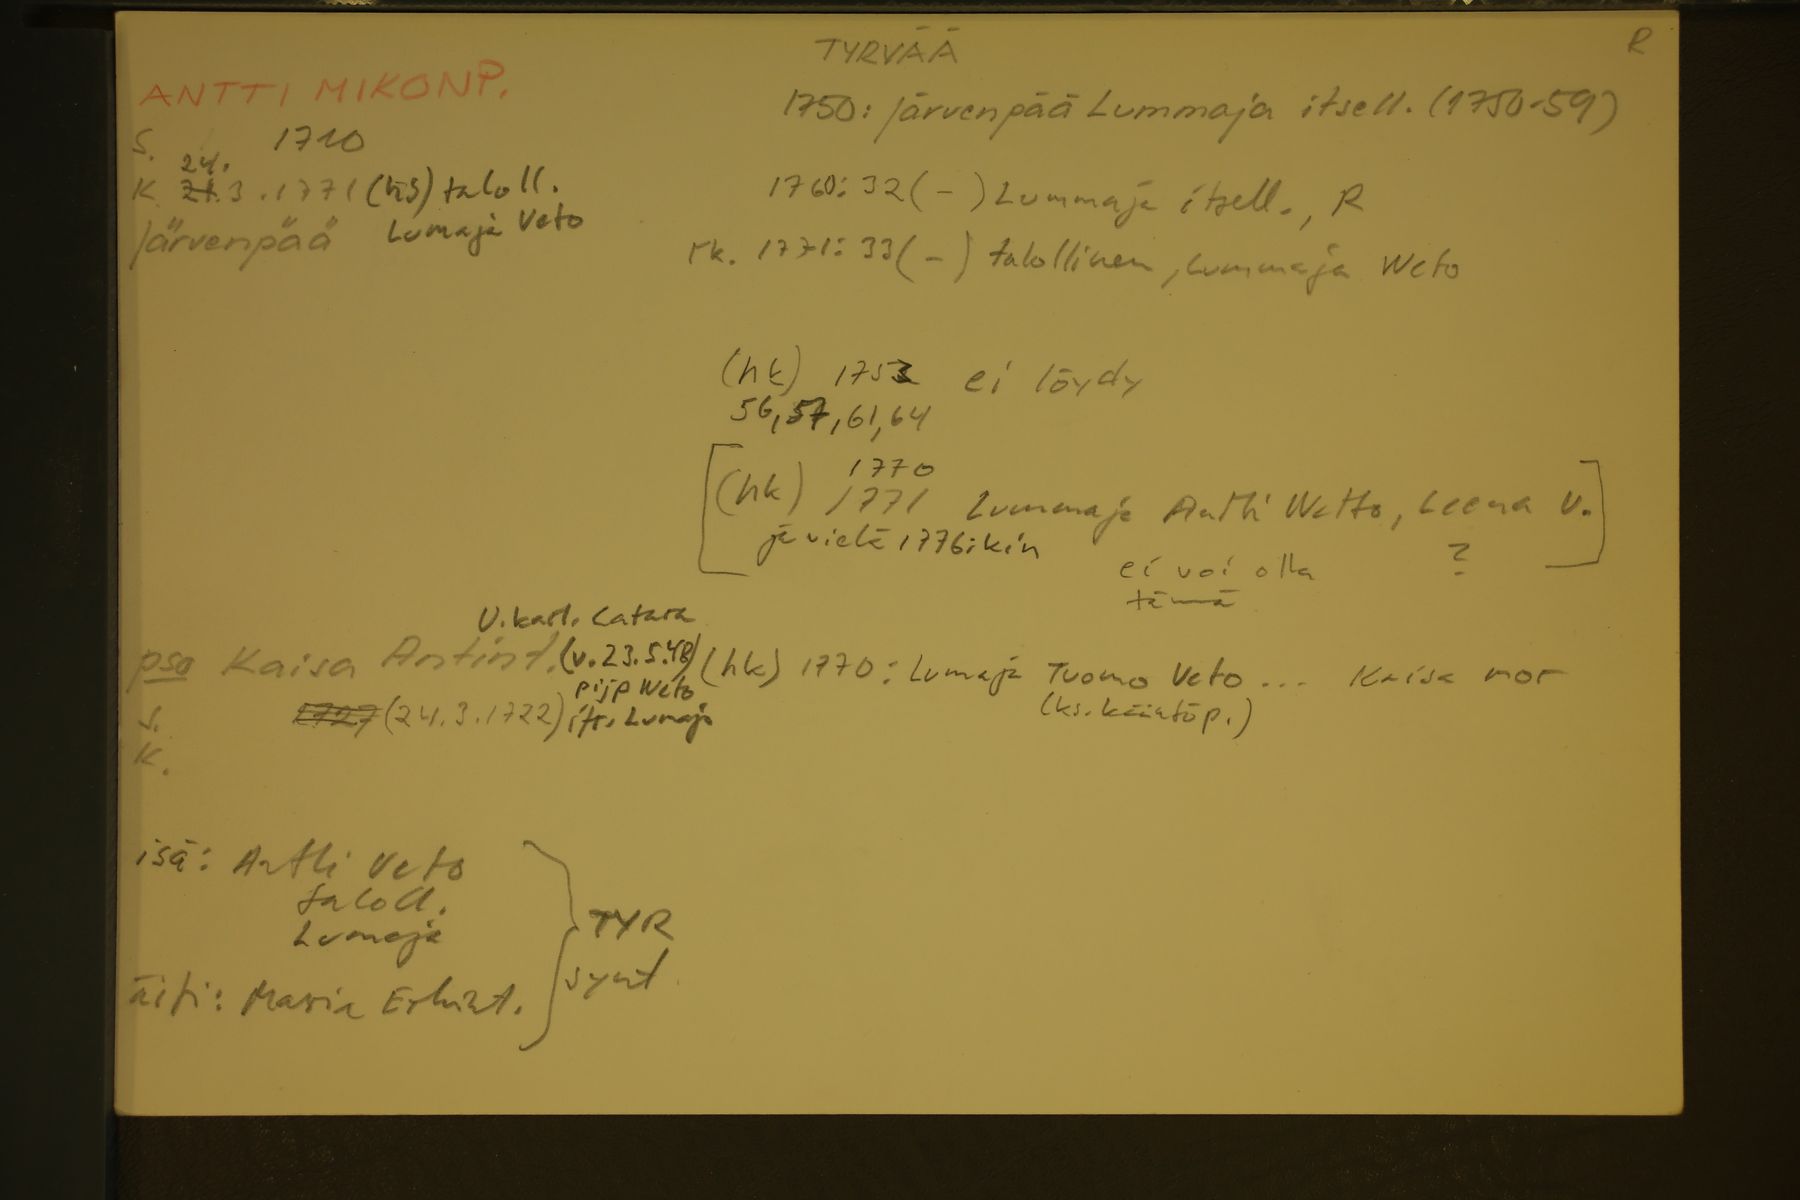 TYRVÄÄ
R
ANTTI MIKONP.
S. 1710
24.
K. 21.3.1771 (ks) taloll.
Järvenpää Lumaja Veto
1750: Järvenpää Lummaja itsell. (1750-59)
1760: 32 (-) Lummaja itsell., R
rk. 1771: 33 (-) talollinen, Lummaja Weto
(hk) 1753 ei löydy
56, 57, 61, 64
1770
(hk) 1771 Lummaja Antti Wetto, Leena V.
ja vielä 1776:kin
ei voi olla ?
tämä
V. karl. Catara
pso Kaisa Antint. (v. 23.5.48) (hk) 1770: Lumaja Tuomo Veto ... Kaisa mor
pijp Weto
(ks. kääntöp.)
S. 1727 (24.3.1722) its. Lumaja
K.
isä: Antti Veto
taloll.
Lumaja
TYR
synt.
äiti: Maria Erkint.